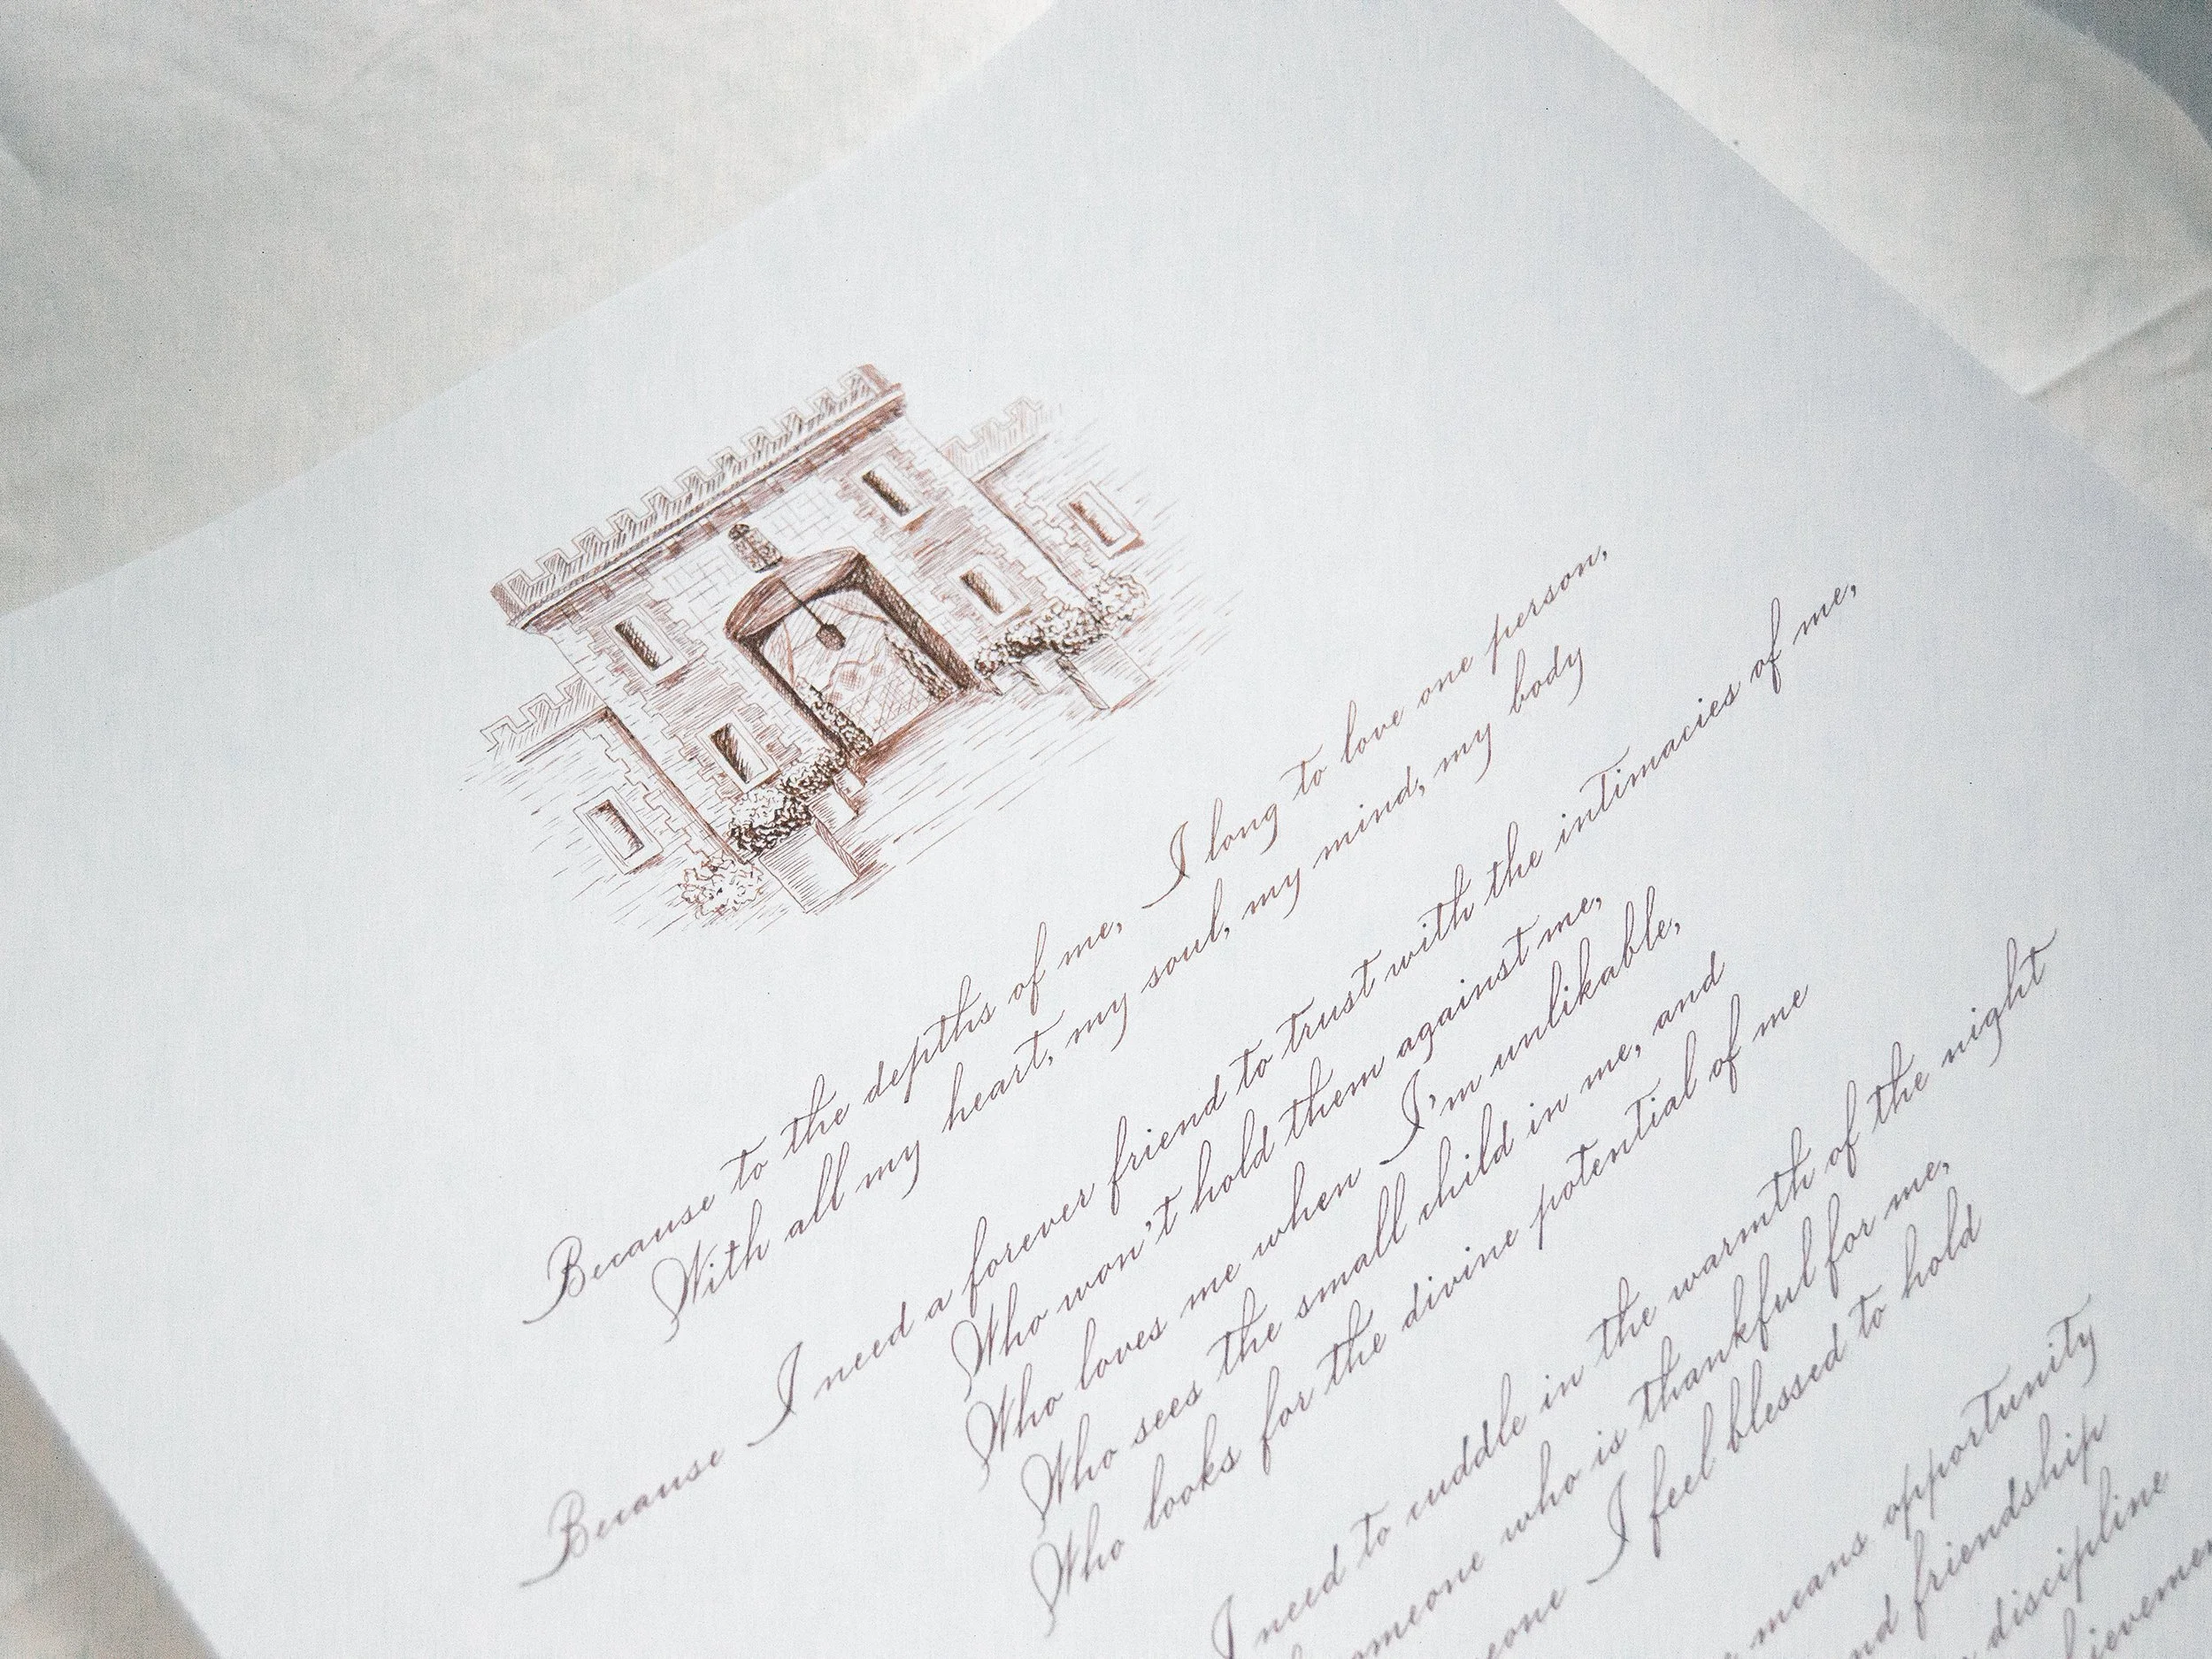 Because to the depths of me, I long to love one person,
With all my heart, my soul, my mind, my body
Because I need a forever friend to trust with the intimacies of me,
Who won't hold them against me,
Who loves me when I'm unlikable,
Who sees the small child in me, and
Who looks for the divine potential of me
I need to cuddle in the warmth of the night
who is thankful for me,
I feel blessed to hold
means opportunity
friendship
discipline